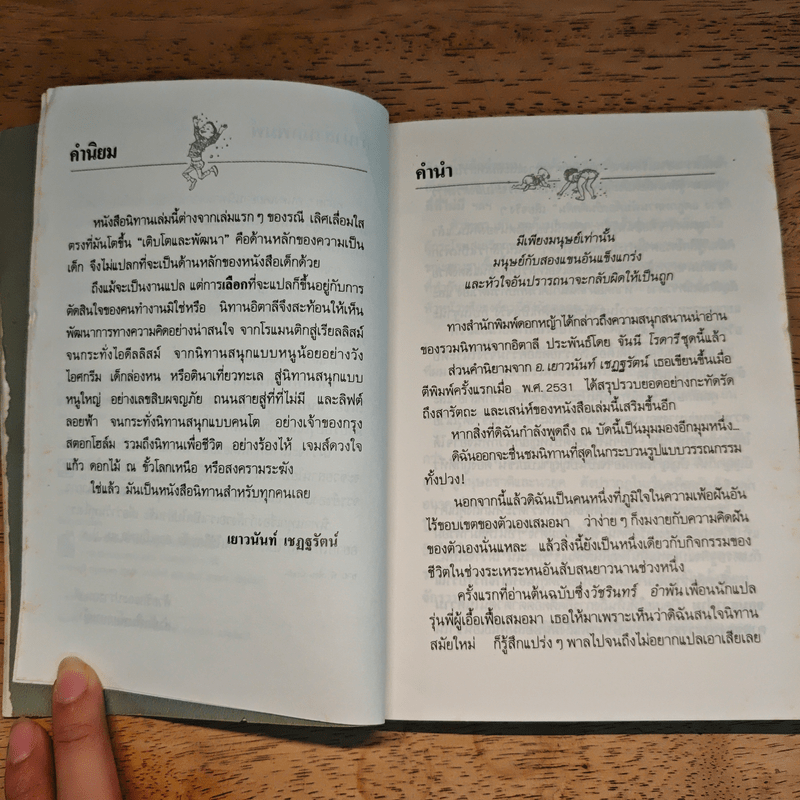 คำนิยม
หนังสือนิทานเล่มนี้ต่างจากเล่มแรก ๆ ของรณี เลิศเลื่อมใส
ตรงที่มันโตขึ้น "เติบโตและพัฒนา" คือด้านหลักของความเป็น
เด็ก จึงไม่แปลกที่จะเป็นด้านหลักของหนังสือเด็กด้วย
ถึงแม้จะเป็นงานแปล แต่การเลือกที่จะแปลก็ขึ้นอยู่กับการ
ตัดสินใจของคนทำงานมิใช่หรือ นิทานอิตาลีจึงสะท้อนให้เห็น
พัฒนาการทางความคิดอย่างน่าสนใจ จากโรแมนติกสู่เรียลลิสม์
จนกระทั่งไอดีลลิสม์ จากนิทานสนุกแบบหนูน้อยอย่างวัง
ไอศกรีม เด็กล่องหน หรือตินาเที่ยวทะเล สู่นิทานสนุกแบบ
หนูใหญ่ อย่างเลขสิบผจญภัย ถนนสายสู่ที่ที่ไม่มี และลิฟต์
ลอยฟ้า จนกระทั่งนิทานสนุกแบบคนโต อย่างเจ้าของกรุง
สตอกโฮล์ม รวมถึงนิทานเพื่อชีวิต อย่างร้องไห้ เจมส์ดวงใจ
แก้ว ดอกไม้ ณ ขั้วโลกเหนือ หรือสงครามระฆัง
ใช่แล้ว มันเป็นหนังสือนิทานสำหรับทุกคนเลย
เยาวนันท์ เชฏฐรัตน์
คำนำ
มีเพียงมนุษย์เท่านั้น
มนุษย์กับสองแขนอันแข็งแกร่ง
และหัวใจอันปรารถนาจะกลับผิดให้เป็นถูก
ทางสำนักพิมพ์ดอกหญ้าได้กล่าวถึงความสนุกสนานน่าอ่าน
ของรวมนิทานจากอิตาลี ประพันธ์โดย จันนี โรดารีชุดนี้แล้ว
ส่วนคำนิยมจาก อ.เยาวนันท์ เชฏฐรัตน์ เธอเขียนขึ้นเมื่อ
ตีพิมพ์ครั้งแรกเมื่อ พ.ศ.2531 ได้สรุปรวบยอดอย่างกะทัดรัด
ถึงสารัตถะ และเสน่ห์ของหนังสือเล่มนี้เสริมขึ้นอีก
หากสิ่งที่ดิฉันกำลังพูดถึง ณ บัดนี้เป็นมุมมองอีกมุมหนึ่ง...
ดิฉันออกจะชื่นชมนิทานที่สุดในกระบวนรูปแบบวรรณกรรม
ทั้งปวง!
นอกจากนี้แล้วดิฉันเป็นคนหนึ่งที่ภูมิใจในความเพ้อฝันอัน
ไร้ขอบเขตของตัวเองเสมอมา ว่าง่าย ๆ ก็งมงายกับความคิดฝัน
ของตัวเองนั่นแหละ แล้วสิ่งนี้ยังเป็นหนึ่งเดียวกับกิจกรรมของ
ชีวิตในช่วงระเหระหนอันสับสนยาวนานช่วงหนึ่ง
ครั้งแรกที่อ่านต้นฉบับซึ่งวัชรินทร์ อำพันเพื่อนนักแปล
รุ่นพี่ผู้เอื้อเฟื้อเสมอมา เธอให้มาเพราะเห็นว่าดิฉันสนใจนิทาน
สมัยใหม่ ก็รู้สึกแปร่ง ๆ พาลไปจนถึงไม่อยากแปลเอาเสียเลย